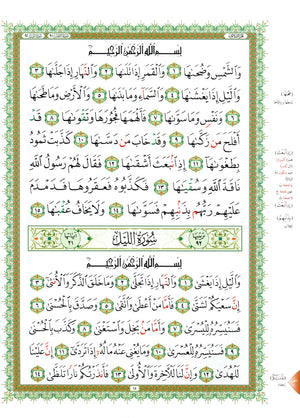 بِسْمِ اللَّهِ الرَّحْمَٰنِ الرَّحِيمِ
وَالشَّمْسِ وَضُحَىٰهَا ١ وَالْقَمَرِ إِذَا تَلَىٰهَا ٢ وَالنَّهَارِ إِذَا جَلَّىٰهَا ٣
وَاللَّيْلِ إِذَا يَغْشَىٰهَا ٤ وَالسَّمَاءِ وَمَا بَنَىٰهَا ٥ وَالْأَرْضِ وَمَا طَحَىٰهَا
٦ وَنَفْسٍ وَمَا سَوَّىٰهَا ٧ فَأَلْهَمَهَا فُجُورَهَا وَتَقْوَىٰهَا ٨ قَدْ
أَفْلَحَ مَن زَكَّىٰهَا ٩ وَقَدْ خَابَ مَن دَسَّىٰهَا ١٠ كَذَّبَتْ ثَمُودُ
بِطَغْوَىٰهَا ١١ إِذِ انبَعَثَ أَشْقَىٰهَا ١٢ فَقَالَ لَهُمْ رَسُولُ اللَّهِ
نَاقَةَ اللَّهِ وَسُقْيَٰهَا ١٣ فَكَذَّبُوهُ فَعَقَرُوهَا فَدَمْدَمَ
عَلَيْهِمْ رَبُّهُم بِذَنبِهِمْ فَسَوَّىٰهَا ١٤ وَلَا يَخَافُ عُقْبَٰهَا ١٥
سُورَةُ اللَّيْلِ
بِسْمِ اللَّهِ الرَّحْمَٰنِ الرَّحِيمِ
وَاللَّيْلِ إِذَا يَغْشَىٰ ١ وَالنَّهَارِ إِذَا تَجَلَّىٰ ٢ وَمَا خَلَقَ الذَّكَرَ وَالْأُنثَىٰ ٣
إِنَّ سَعْيَكُمْ لَشَتَّىٰ ٤ فَأَمَّا مَنْ أَعْطَىٰ وَاتَّقَىٰ ٥ وَصَدَّقَ بِالْحُسْنَىٰ ٦
فَسَنُيَسِّرُهُ لِلْيُسْرَىٰ ٧ وَأَمَّا مَن بَخِلَ وَاسْتَغْنَىٰ ٨ وَكَذَّبَ بِالْحُسْنَىٰ
٩ فَسَنُيَسِّرُهُ لِلْعُسْرَىٰ ١٠ وَمَا يُغْنِي عَنْهُ مَالُهُ إِذَا تَرَدَّىٰ ١١ إِنَّ عَلَيْنَا
لَلْهُدَىٰ ١٢ وَإِنَّ لَنَا لَلْآخِرَةَ وَالْأُولَىٰ ١٣ فَأَنذَرْتُكُمْ نَارًا تَلَظَّىٰ ١٤